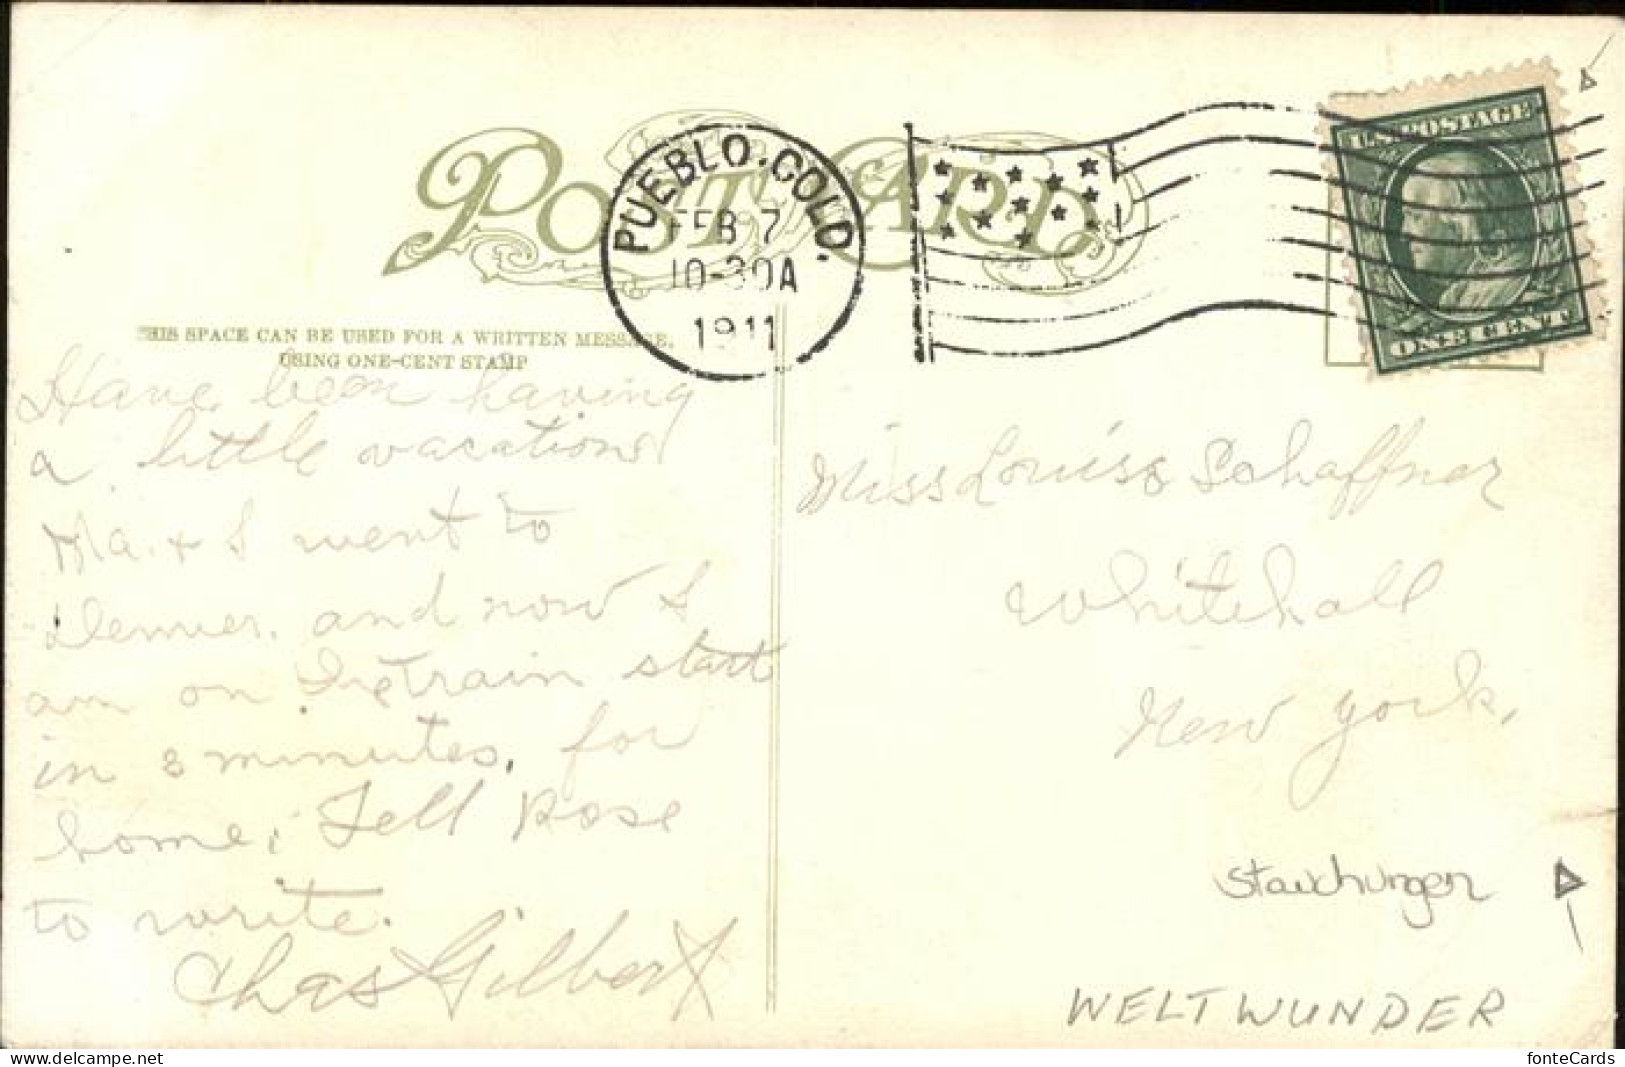 POST CARD
PUEBLO. COLO.
FEB 7
10-30A
1911
U.S. POSTAGE
ONE CENT
THIS SPACE CAN BE USED FOR A WRITTEN MESSAGE,
USING ONE-CENT STAMP
Have been having
a little vacation
Ma. & I went to
Denver. and now I
am on train start
in 3 minutes. for
home. Tell Rose
to write.
Chas Gilbert
Miss Louise Schaffner
Whitehall
New York.
Stauchungen
WELTWUNDER
www.delcampe.net
fonteCards